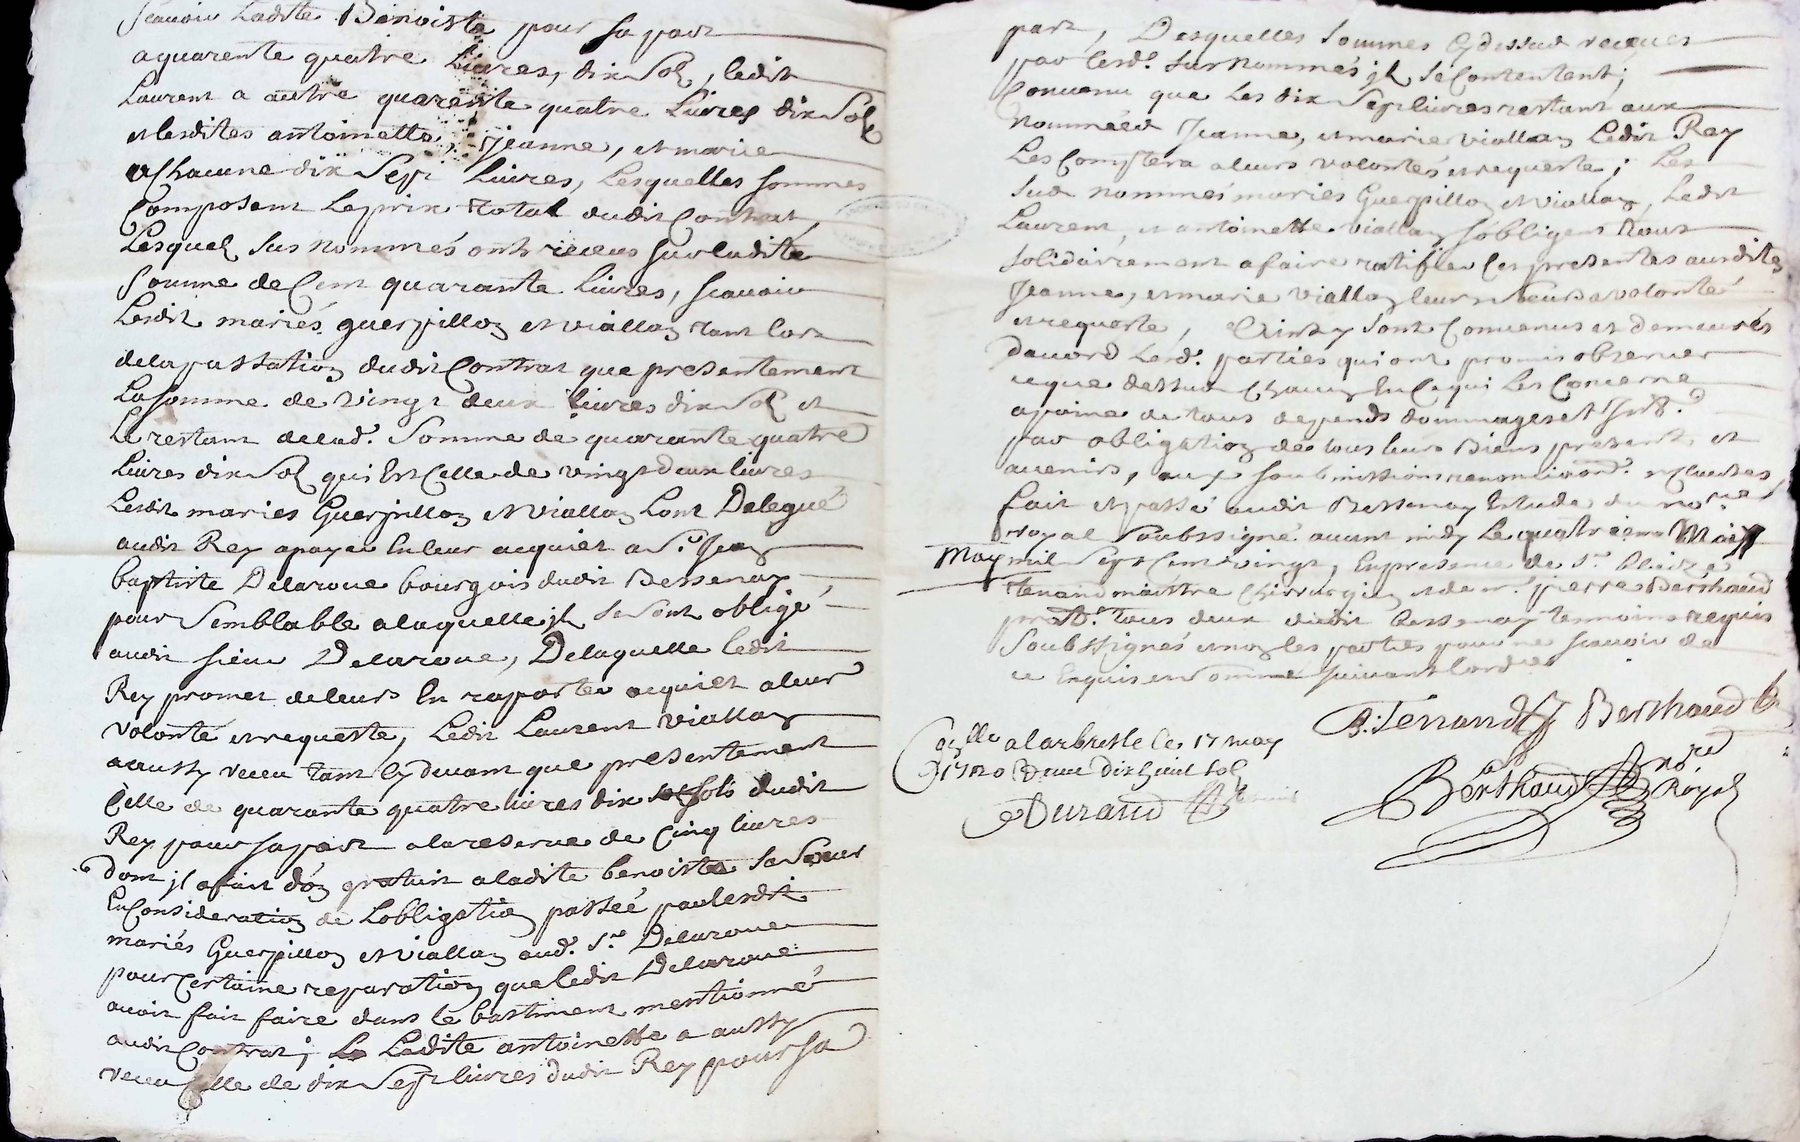 scavoir Ladite Benoiste pour sa part
a quarente quatre Livres, dix Sol, ledit
Laurent a autre quarente quatre Livres dix Sols
et lesdites antoinette, Jeanne, et marie
a Chacune dix Sept Livres, Lesquelles sommes
Composent Le prix total dudit Contrat
Lesquels sus nommés onts receus sur ladite
somme de Cent quarante Livres, scavoir
Lesdit mariés guerpillon et viallon tant lors
de la passation dudit Contrat que presentement
La somme de vingt deux livres dix Sol et
Le restant de lad. Somme de quarante quatre
Livres dix Sol qui Est Celle de vingt deux livres
Lesdit mariés Guerpillon et Viallon Lont Delegué
audit Rey a payer En leur acquict a Sr. Jean
baptiste Delaroue bourgois dudit Bessenay
pour Semblable a laquelle jls se sont obligé
audit sieur Delaroue, De laquelle ledit
Rey promet de leurs En raporter acquict a leur
volonté et requeste, Ledit Laurent viallon
a aussy receu tant Cy devant que presentement
Celle de quarante quatre livres dix sols dudit
Rey pour sa part a la reserve de Cinq livres
dont jl a fait don gratuit a ladite benoiste sa Soeur
En Consideration de Lobligation passée par lesdit
mariés Guerpillon et Viallon aud. Sr. Delaroue
pour Certaine reparation que ledit Delaroue
avoit fait faire dans le bastiment mentionné
audit Contrat; La Ladite antoinette a aussy
receu Celle de dix Sept livres dudit Rey pour sa
part, Desquelles Sommes Cy dessus receues
par lesd. surnommés jls se Contentent;
Convenu que Les dix Sept livres restant aux
nommées Jeanne, et marie viallon Ledit Rey
Les Comptera a leurs volontés et requeste; Les
sus nommés mariés Guerpillon et viallon, Ledit
Laurent, et antoinette viallon s'obligent tous
solidairement a faire ratiffier Ces presentes ausdites
Jeanne, et marie viallon leurs soeurs a volonté
et requeste, Ainsy sont Convenus et demeurés
daccord Lesd. parties qui ont promis observer
ce que dessus Chacun En Ce qui Les Concerne
a peine de tous depends dommages et Jnts.
par obligation de tous leurs Biens presents et
avenirs, aux soubmissions renonciaons. et Clauses
fait et passé audit Bessenay Estude du nore.
royal Soubssigné avant midy Le quatrieme Mois
May mil Sept Cent vingt, En presence de Sr.
Tenand maistre Chirurgien et de Mr. pierre Berthaud
tous deux dudit bessenay temoins requis
Soubssignés et non les parties pour ne scavoir de
ce Enquis et Sommé suivant Lord
B. Tenand Berthaud
Conlle a larbresle le 17 may
1720 Receu dix huit sols
Durand
Berthaud nore
Royal